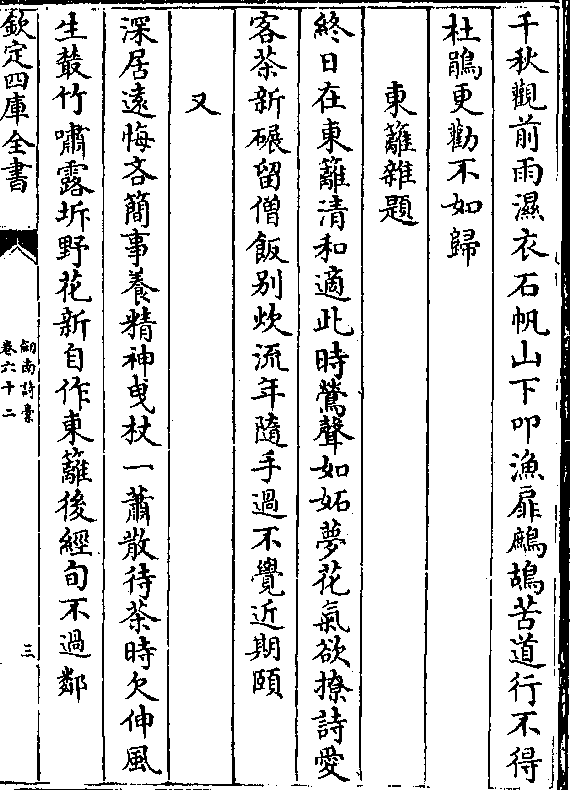 千秋觀前雨濕衣石帆山下叩漁扉鷓鴣苦道行不得
杜鵑更勸不如歸
東籬雜題
終日在東籬清和適此時鶯聲如妬夢花氣欲撩詩愛
客茶新碾留僧飯别炊流年隨手過不覺近期頤
又
深居遠悔吝簡事養精神曳杖一蕭散待茶時欠伸風
生叢竹嘯露坼野花新自作東籬後經旬不過鄰
欽定四庫全書
劒南詩藁
卷六十二
三